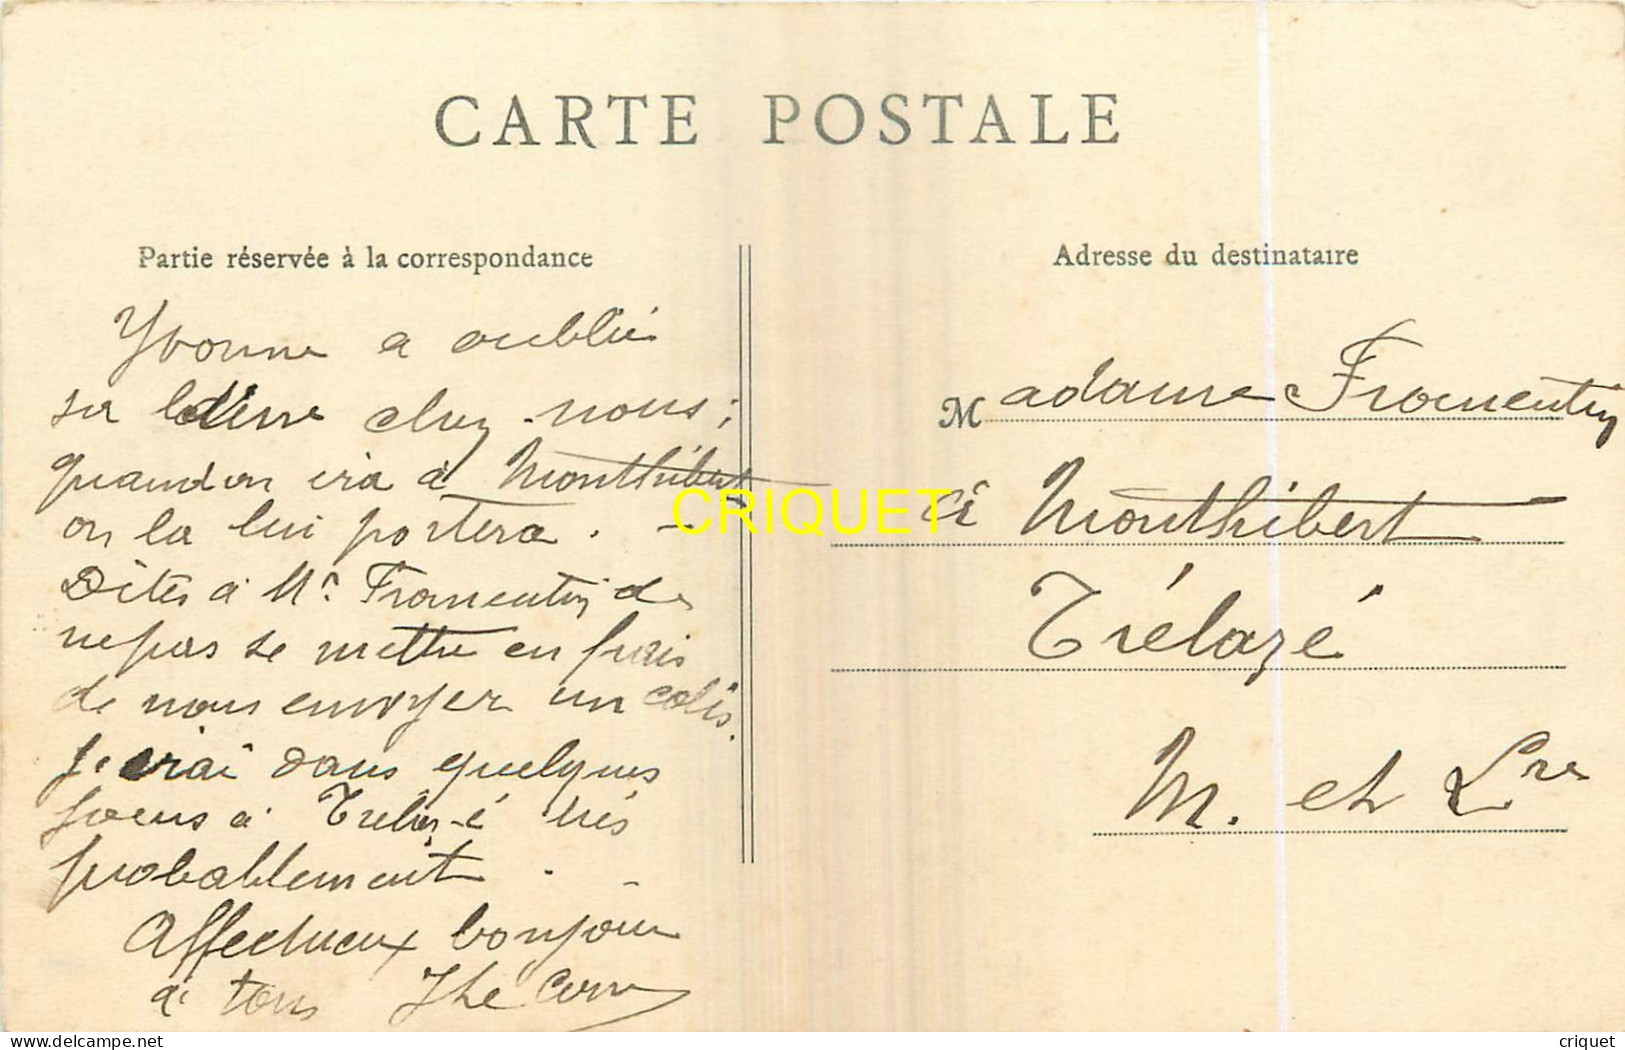 CARTE POSTALE
Partie réservée à la correspondance
Yvonne a oublié
sa chez nous ;
quand on ira à Monthibert
on la lui portera . –
Dites à Mr. Fromentin de
ne pas se mettre en frais
de nous envoyer un colis.
J'irai dans quelques
jours à Trélazé très
probablement . –
Affectueux bonjour
à tous
Adresse du destinataire
Madame Fromentin
à Monthibert
Trélazé
M. et Lre
CRIQUET
criquet